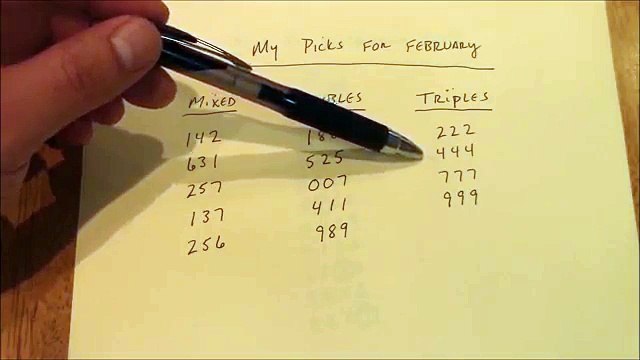 My Picks For February
Mixed Triples
142 222
631 525 444
257 007 777
137 411 999
256 989